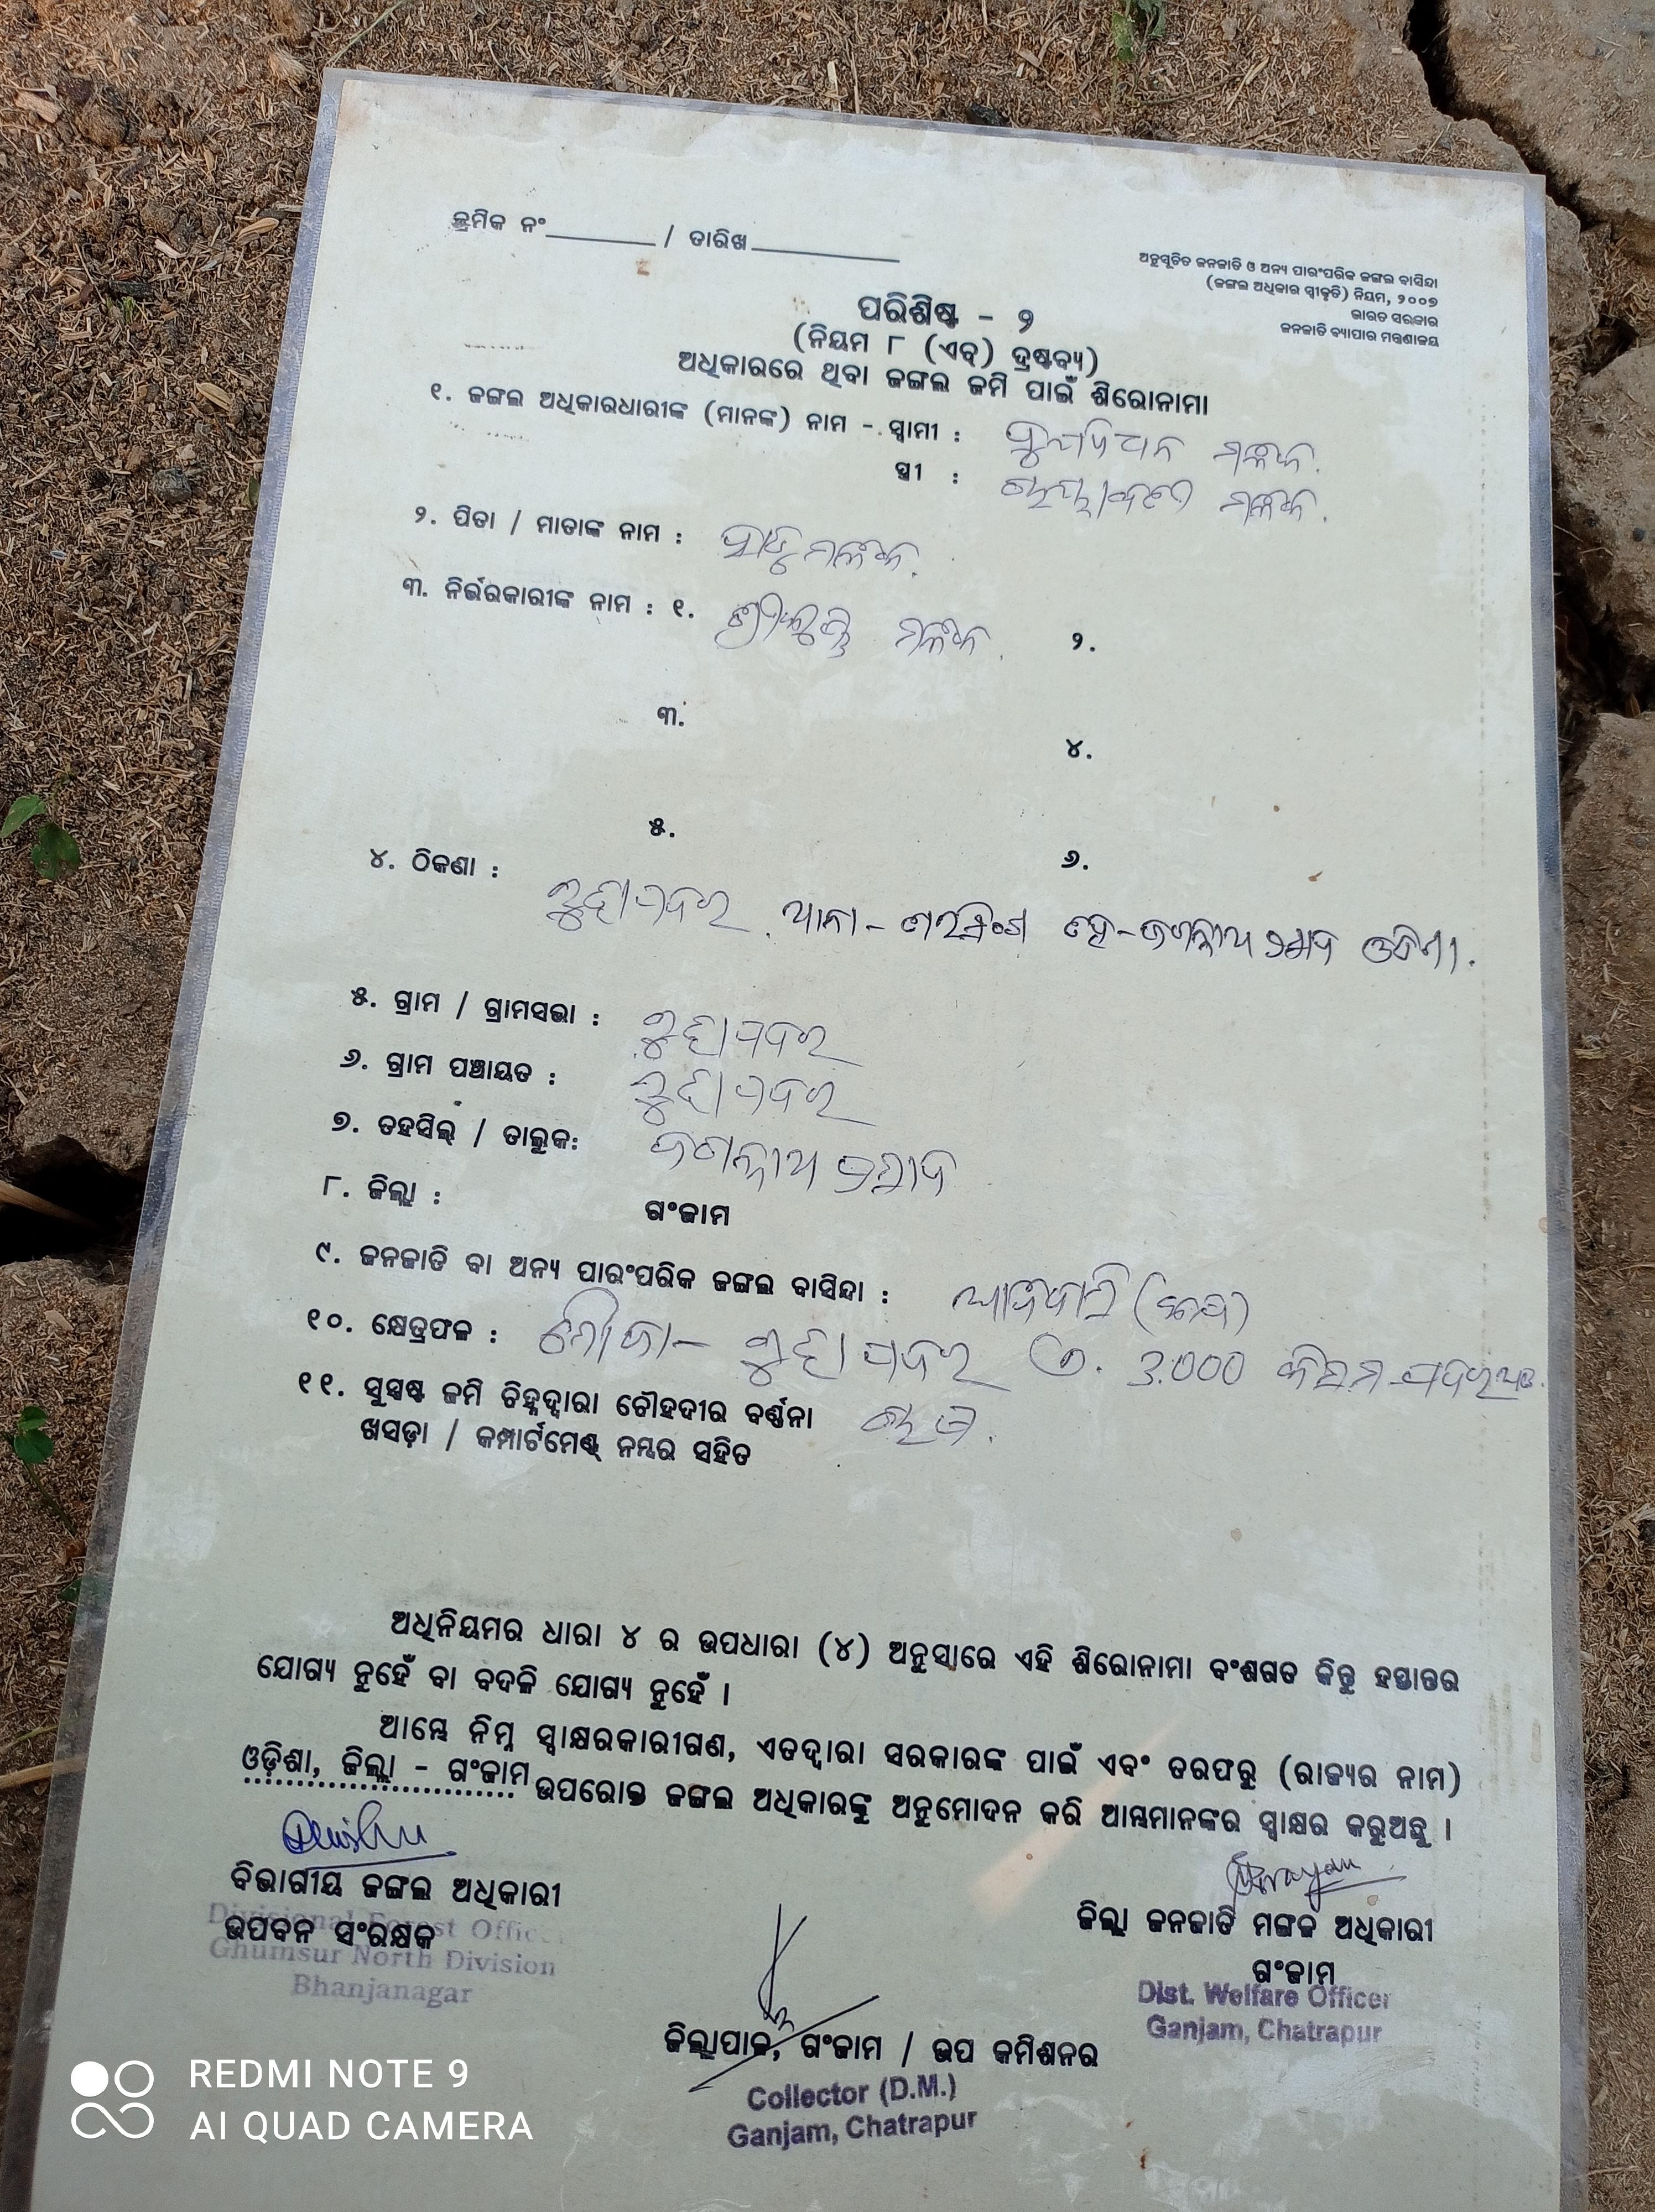 କ୍ରମିକ ନଂ / ତାରିଖ
ଅନୁସୂଚିତ ଜନଜାତି ଓ ଅନ୍ୟ ପାରଂପରିକ ଜଙ୍ଗଲ ବାସିନ୍ଦା
(ଜଙ୍ଗଲ ଅଧିକାର ସ୍ୱୀକୃତି) ନିୟମ, ୨୦୦୭
ଭାରତ ସରକାର
ଜନଜାତି ବ୍ୟାପାର ମନ୍ତ୍ରଣାଳୟ
ପରିଶିଷ୍ଟ - ୨
(ନିୟମ ୮ (ଏଚ୍) ଦ୍ରଷ୍ଟବ୍ୟ)
ଅଧିକାରରେ ଥିବା ଜଙ୍ଗଲ ଜମି ପାଇଁ ଶିରୋନାମା
୧. ଜଙ୍ଗଲ ଅଧିକାରଧାରୀଙ୍କ (ମାନଙ୍କ) ନାମ - ସ୍ୱାମୀ : ମଲ୍ଲିକ
ସ୍ତ୍ରୀ : ମଲ୍ଲିକ
୨. ପିତା / ମାତାଙ୍କ ନାମ : ମଲ୍ଲିକ
୩. ନିର୍ଭରକାରୀଙ୍କ ନାମ : ୧. ମଲ୍ଲିକ ୨.
୩. ୪.
୫. ୬.
୪. ଠିକଣା : ଥାନା - ଜଗନ୍ନାଥ ପ୍ରସାଦ ଓଡିଶା.
୫. ଗ୍ରାମ / ଗ୍ରାମସଭା :
୬. ଗ୍ରାମ ପଞ୍ଚାୟତ :
୭. ତହସିଲ୍ / ତାଲୁକ: ଜଗନ୍ନାଥ ପ୍ରସାଦ
୮. ଜିଲ୍ଲା : ଗଂଜାମ
୯. ଜନଜାତି ବା ଅନ୍ୟ ପାରଂପରିକ ଜଙ୍ଗଲ ବାସିନ୍ଦା : ଆଦିବାସି
୧୦. କ୍ଷେତ୍ରଫଳ : ମୌଜା - 3.000 କିସମ
୧୧. ସୁସ୍ପଷ୍ଟ ଜମି ଚିହ୍ନଦ୍ୱାରା ଚୌହଦୀର ବର୍ଣ୍ଣନା
ଖସଡ଼ା / କମ୍ପାର୍ଟମେଣ୍ଟ୍ ନମ୍ବର ସହିତ
ଅଧିନିୟମର ଧାରା ୪ ର ଉପଧାରା (୪) ଅନୁସାରେ ଏହି ଶିରୋନାମା ବଂଶଗତ କିନ୍ତୁ ହସ୍ତାନ୍ତର
ଯୋଗ୍ୟ ନୁହେଁ ବା ବଦଳି ଯୋଗ୍ୟ ନୁହେଁ ।
ଆମ୍ଭେ ନିମ୍ନ ସ୍ୱାକ୍ଷରକାରୀଗଣ, ଏତଦ୍ୱାରା ସରକାରଙ୍କ ପାଇଁ ଏବଂ ତରଫରୁ (ରାଜ୍ୟର ନାମ)
ଓଡ଼ିଶା, ଜିଲ୍ଲା - ଗଂଜାମ ଉପରୋକ୍ତ ଜଙ୍ଗଲ ଅଧିକାରଙ୍କୁ ଅନୁମୋଦନ କରି ଆମ୍ଭମାନଙ୍କର ସ୍ୱାକ୍ଷର କରୁଅଛୁ ।
ବିଭାଗୀୟ ଜଙ୍ଗଲ ଅଧିକାରୀ
ଉପବନ ସଂରକ୍ଷକ
Divisional Forest Officer
Ghumsur North Division
Bhanjanagar
ଜିଲ୍ଲା ଜନଜାତି ମଙ୍ଗଳ ଅଧିକାରୀ
ଗଂଜାମ
Dist. Welfare Officer
Ganjam, Chatrapur
ଜିଲ୍ଲାପାଳ, ଗଂଜାମ / ଉପ କମିଶନର
Collector (D.M.)
Ganjam, Chatrapur
REDMI NOTE 9
AI QUAD CAMERA